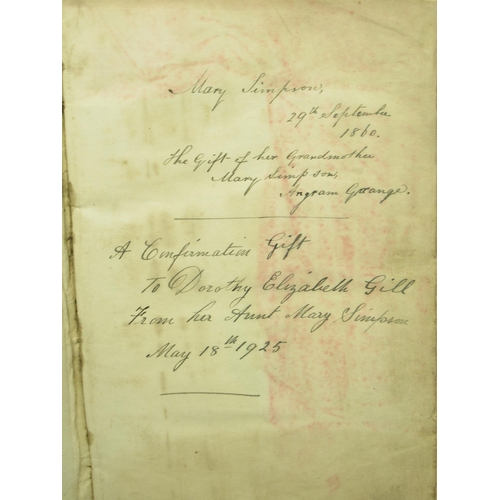 Mary Simpson,
29th September
1860.
The Gift of her Grandmother
Mary Simpson,
Angram Grange.
A Confirmation Gift
To Dorothy Elizabeth Gill
From her Aunt Mary Simpson
May 18th 1925